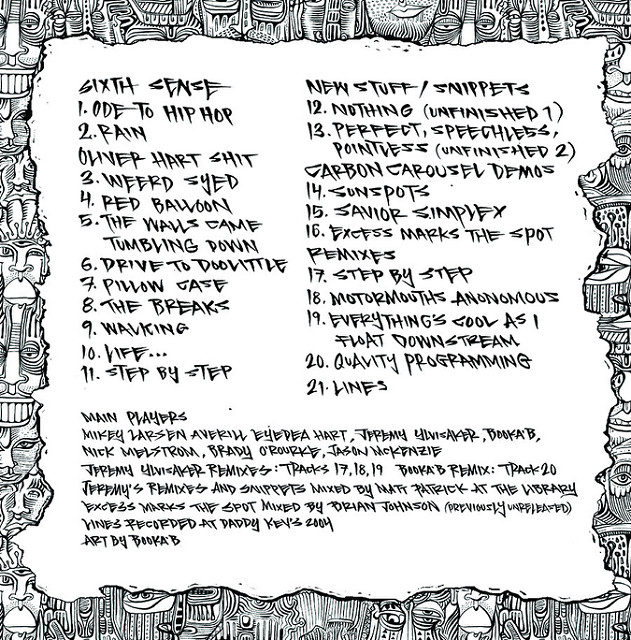 SIXTH SENSE
1. ODE TO HIP HOP
2. RAIN
OLIVER HART SHIT
3. WEERD SYED
4. RED BALLOON
5. THE WALLS CAME
TUMBLING DOWN
6. DRIVE TO DOOLITTLE
7. PILLOW CASE
8. THE BREAKS
9. WALKING
10. LIFE...
11. STEP BY STEP
NEW STUFF / SNIPPETS
12. NOTHING (UNFINISHED 1)
13. PERFECT, SPEECHLESS,
POINTLESS (UNFINISHED 2)
CARBON CAROUSEL DEMOS
14. SUNSPOTS
15. SAVIOR SIMPLEX
16. EXCESS MARKS THE SPOT
REMIXES
17. STEP BY STEP
18. MOTORMOUTHS ANONYMOUS
19. EVERYTHING'S COOL AS I
FLOAT DOWNSTREAM
20. QUALITY PROGRAMMING
21. LINES
MAIN PLAYERS
MIKEY LARSEN AVERILL EYEDEA HART, JEREMY YLVISAKER, BOOKA'B,
NICK MELSTROM, BRADY O'ROURKE, JASON MCKENZIE
JEREMY YLVISAKER REMIXES: TRACKS 17, 18, 19 BOOKA'B REMIX: TRACK 20
JEREMY'S REMIXES AND SNIPPETS MIXED BY MATT PATRICK AT THE LIBRARY
EXCESS MARKS THE SPOT MIXED BY BRIAN JOHNSON (PREVIOUSLY UNRELEASED)
LINES RECORDED AT DADDY KEV'S 2004
ART BY BOOKA'B